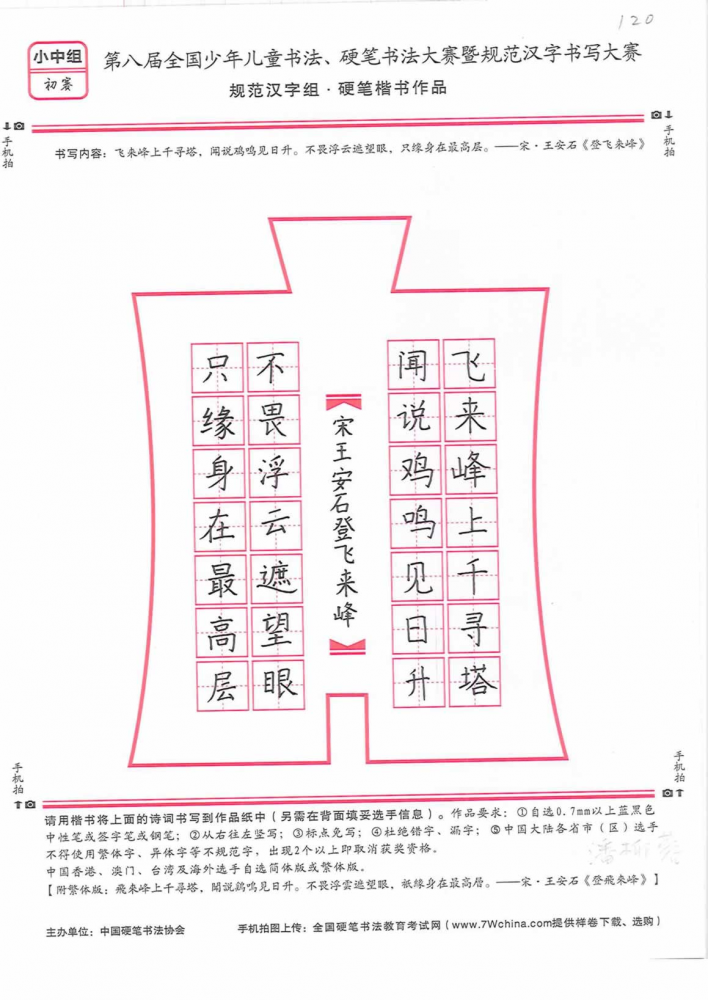 120
小中组
初赛
第八届全国少年儿童书法、硬笔书法大赛暨规范汉字书写大赛
规范汉字组·硬笔楷书作品
手机拍
手机拍
书写内容：飞来峰上千寻塔，闻说鸡鸣见日升。不畏浮云遮望眼，只缘身在最高层。——宋·王安石《登飞来峰》
飞来峰上千寻塔
闻说鸡鸣见日升
宋王安石登飞来峰
不畏浮云遮望眼
只缘身在最高层
手机拍
手机拍
请用楷书将上面的诗词书写到作品纸中（另需在背面填妥选手信息）。作品要求：①自选0.7mm以上蓝黑色
中性笔或签字笔或钢笔；②从右往左竖写；③标点免写；④杜绝错字、漏字；⑤中国大陆各省市（区）选手
不得使用繁体字、异体字等不规范字，出现2个以上即取消获奖资格。
中国香港、澳门、台湾及海外选手自选简体版或繁体版。
【附繁体版：飛來峰上千尋塔，聞說鷄鳴見日昇。不畏浮雲遮望眼，衹緣身在最高層。——宋·王安石《登飛來峰》】
主办单位：中国硬笔书法协会
手机拍图上传：全国硬笔书法教育考试网（www.7Wchina.com提供样卷下载、选购）